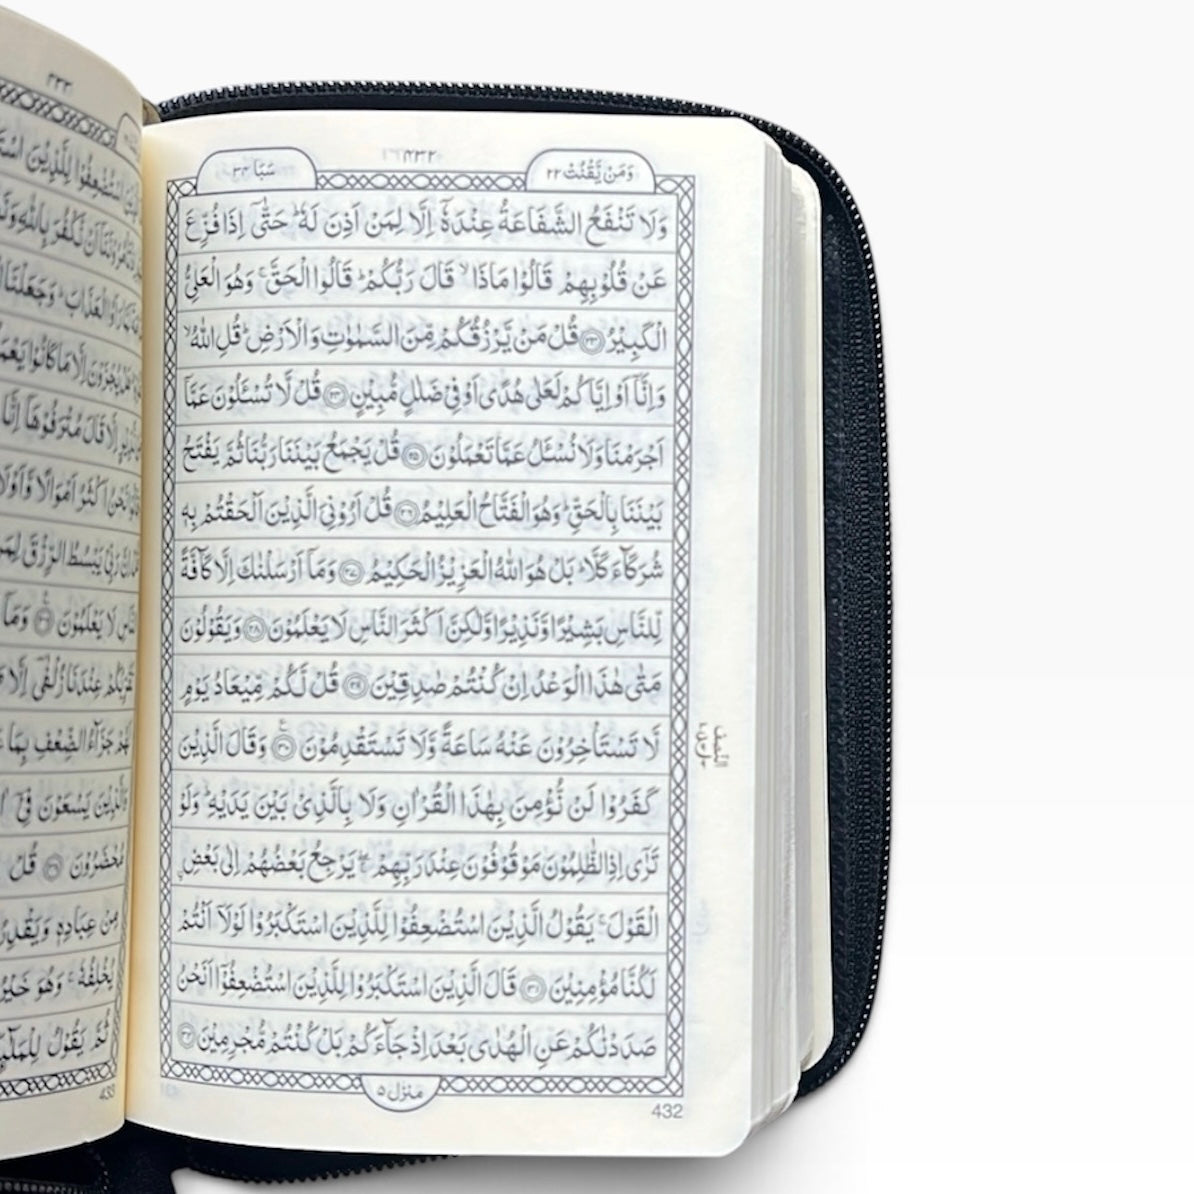 وَمَنْ يَّقْنُتْ ٢٢
٤٣٢
سَبَا ٣٤
وَلَا تَنْفَعُ الشَّفَاعَةُ عِنْدَهٗۤ اِلَّا لِمَنْ اَذِنَ لَهٗ ؕ حَتّٰۤى اِذَا فُزِّعَ
عَنْ قُلُوْبِهِمْ قَالُوْا مَاذَا ۙ قَالَ رَبُّكُمْ ؕ قَالُوا الْحَقَّ ۚ وَهُوَ الْعَلِیُّ
الْكَبِیْرُ ﴿۲۳﴾ قُلْ مَنْ یَّرْزُقُكُمْ مِّنَ السَّمٰوٰتِ وَالْاَرْضِ ؕ قُلِ اللّٰهُ ۙ
وَاِنَّاۤ اَوْ اِیَّاكُمْ لَعَلٰی هُدًی اَوْ فِیْ ضَلٰلٍ مُّبِیْنٍ ﴿۲۴﴾ قُلْ لَّا تُسْـَٔلُوْنَ عَمَّاۤ
اَجْرَمْنَا وَلَا نُسْـَٔلُ عَمَّا تَعْمَلُوْنَ ﴿۲۵﴾ قُلْ یَجْمَعُ بَیْنَنَا رَبُّنَا ثُمَّ یَفْتَحُ
بَیْنَنَا بِالْحَقِّ ؕ وَهُوَ الْفَتَّاحُ الْعَلِیْمُ ﴿۲۶﴾ قُلْ اَرُوْنِیَ الَّذِیْنَ اَلْحَقْتُمْ بِهٖ
شُرَكَآءَ كَلَّا ؕ بَلْ هُوَ اللّٰهُ الْعَزِیْزُ الْحَكِیْمُ ﴿۲۷﴾ وَمَاۤ اَرْسَلْنٰكَ اِلَّا كَآفَّةً
لِّلنَّاسِ بَشِیْرًا وَّنَذِیْرًا وَّلٰكِنَّ اَكْثَرَ النَّاسِ لَا یَعْلَمُوْنَ ﴿۲۸﴾ وَیَقُوْلُوْنَ
مَتٰی هٰذَا الْوَعْدُ اِنْ كُنْتُمْ صٰدِقِیْنَ ﴿۲۹﴾ قُلْ لَّكُمْ مِّیْعَادُ یَوْمٍ
لَّا تَسْتَاْخِرُوْنَ عَنْهُ سَاعَةً وَّلَا تَسْتَقْدِمُوْنَ ﴿۳۰﴾ وَقَالَ الَّذِیْنَ
كَفَرُوْا لَنْ نُّؤْمِنَ بِهٰذَا الْقُرْاٰنِ وَلَا بِالَّذِیْ بَیْنَ یَدَیْهِ ؕ وَلَوْ
تَرٰۤی اِذِ الظّٰلِمُوْنَ مَوْقُوْفُوْنَ عِنْدَ رَبِّهِمْ ۖۚ یَرْجِعُ بَعْضُهُمْ اِلٰی بَعْضِ
ِالْقَوْلَ ۚ یَقُوْلُ الَّذِیْنَ اسْتُضْعِفُوْا لِلَّذِیْنَ اسْتَكْبَرُوْا لَوْلَاۤ اَنْتُمْ
لَكُنَّا مُؤْمِنِیْنَ ﴿۳۱﴾ قَالَ الَّذِیْنَ اسْتَكْبَرُوْا لِلَّذِیْنَ اسْتُضْعِفُوْۤا اَنَحْنُ
صَدَدْنٰكُمْ عَنِ الْهُدٰی بَعْدَ اِذْ جَآءَكُمْ بَلْ كُنْتُمْ مُّجْرِمِیْنَ ﴿۳۲﴾
منزل ٥
432
النصف
٤٣٣
لِلَّذِیْنَ
نَّكْفُرَ بِاللّٰهِ
الْعَذَابَ ؕ وَجَعَلْنَا
اِلَّا مَا كَانُوْا
اِلَّا قَالَ مُتْرَفُوْهَاۤ اِنَّا
نَحْنُ اَكْثَرُ اَمْوَالًا
یَبْسُطُ الرِّزْقَ
لَا یَعْلَمُوْنَ
تُقَرِّبُكُمْ عِنْدَنَا زُلْفٰۤی اِلَّا
لَهُمْ جَزَآءُ الضِّعْفِ بِمَا
وَالَّذِیْنَ یَسْعَوْنَ فِیْۤ
مُحْضَرُوْنَ ﴿۳۸﴾ قُلْ
مِنْ عِبَادِهٖ وَیَقْدِرُ
یُخْلِفُهٗ ۚ وَهُوَ خَیْرُ
ثُمَّ یَقُوْلُ
433